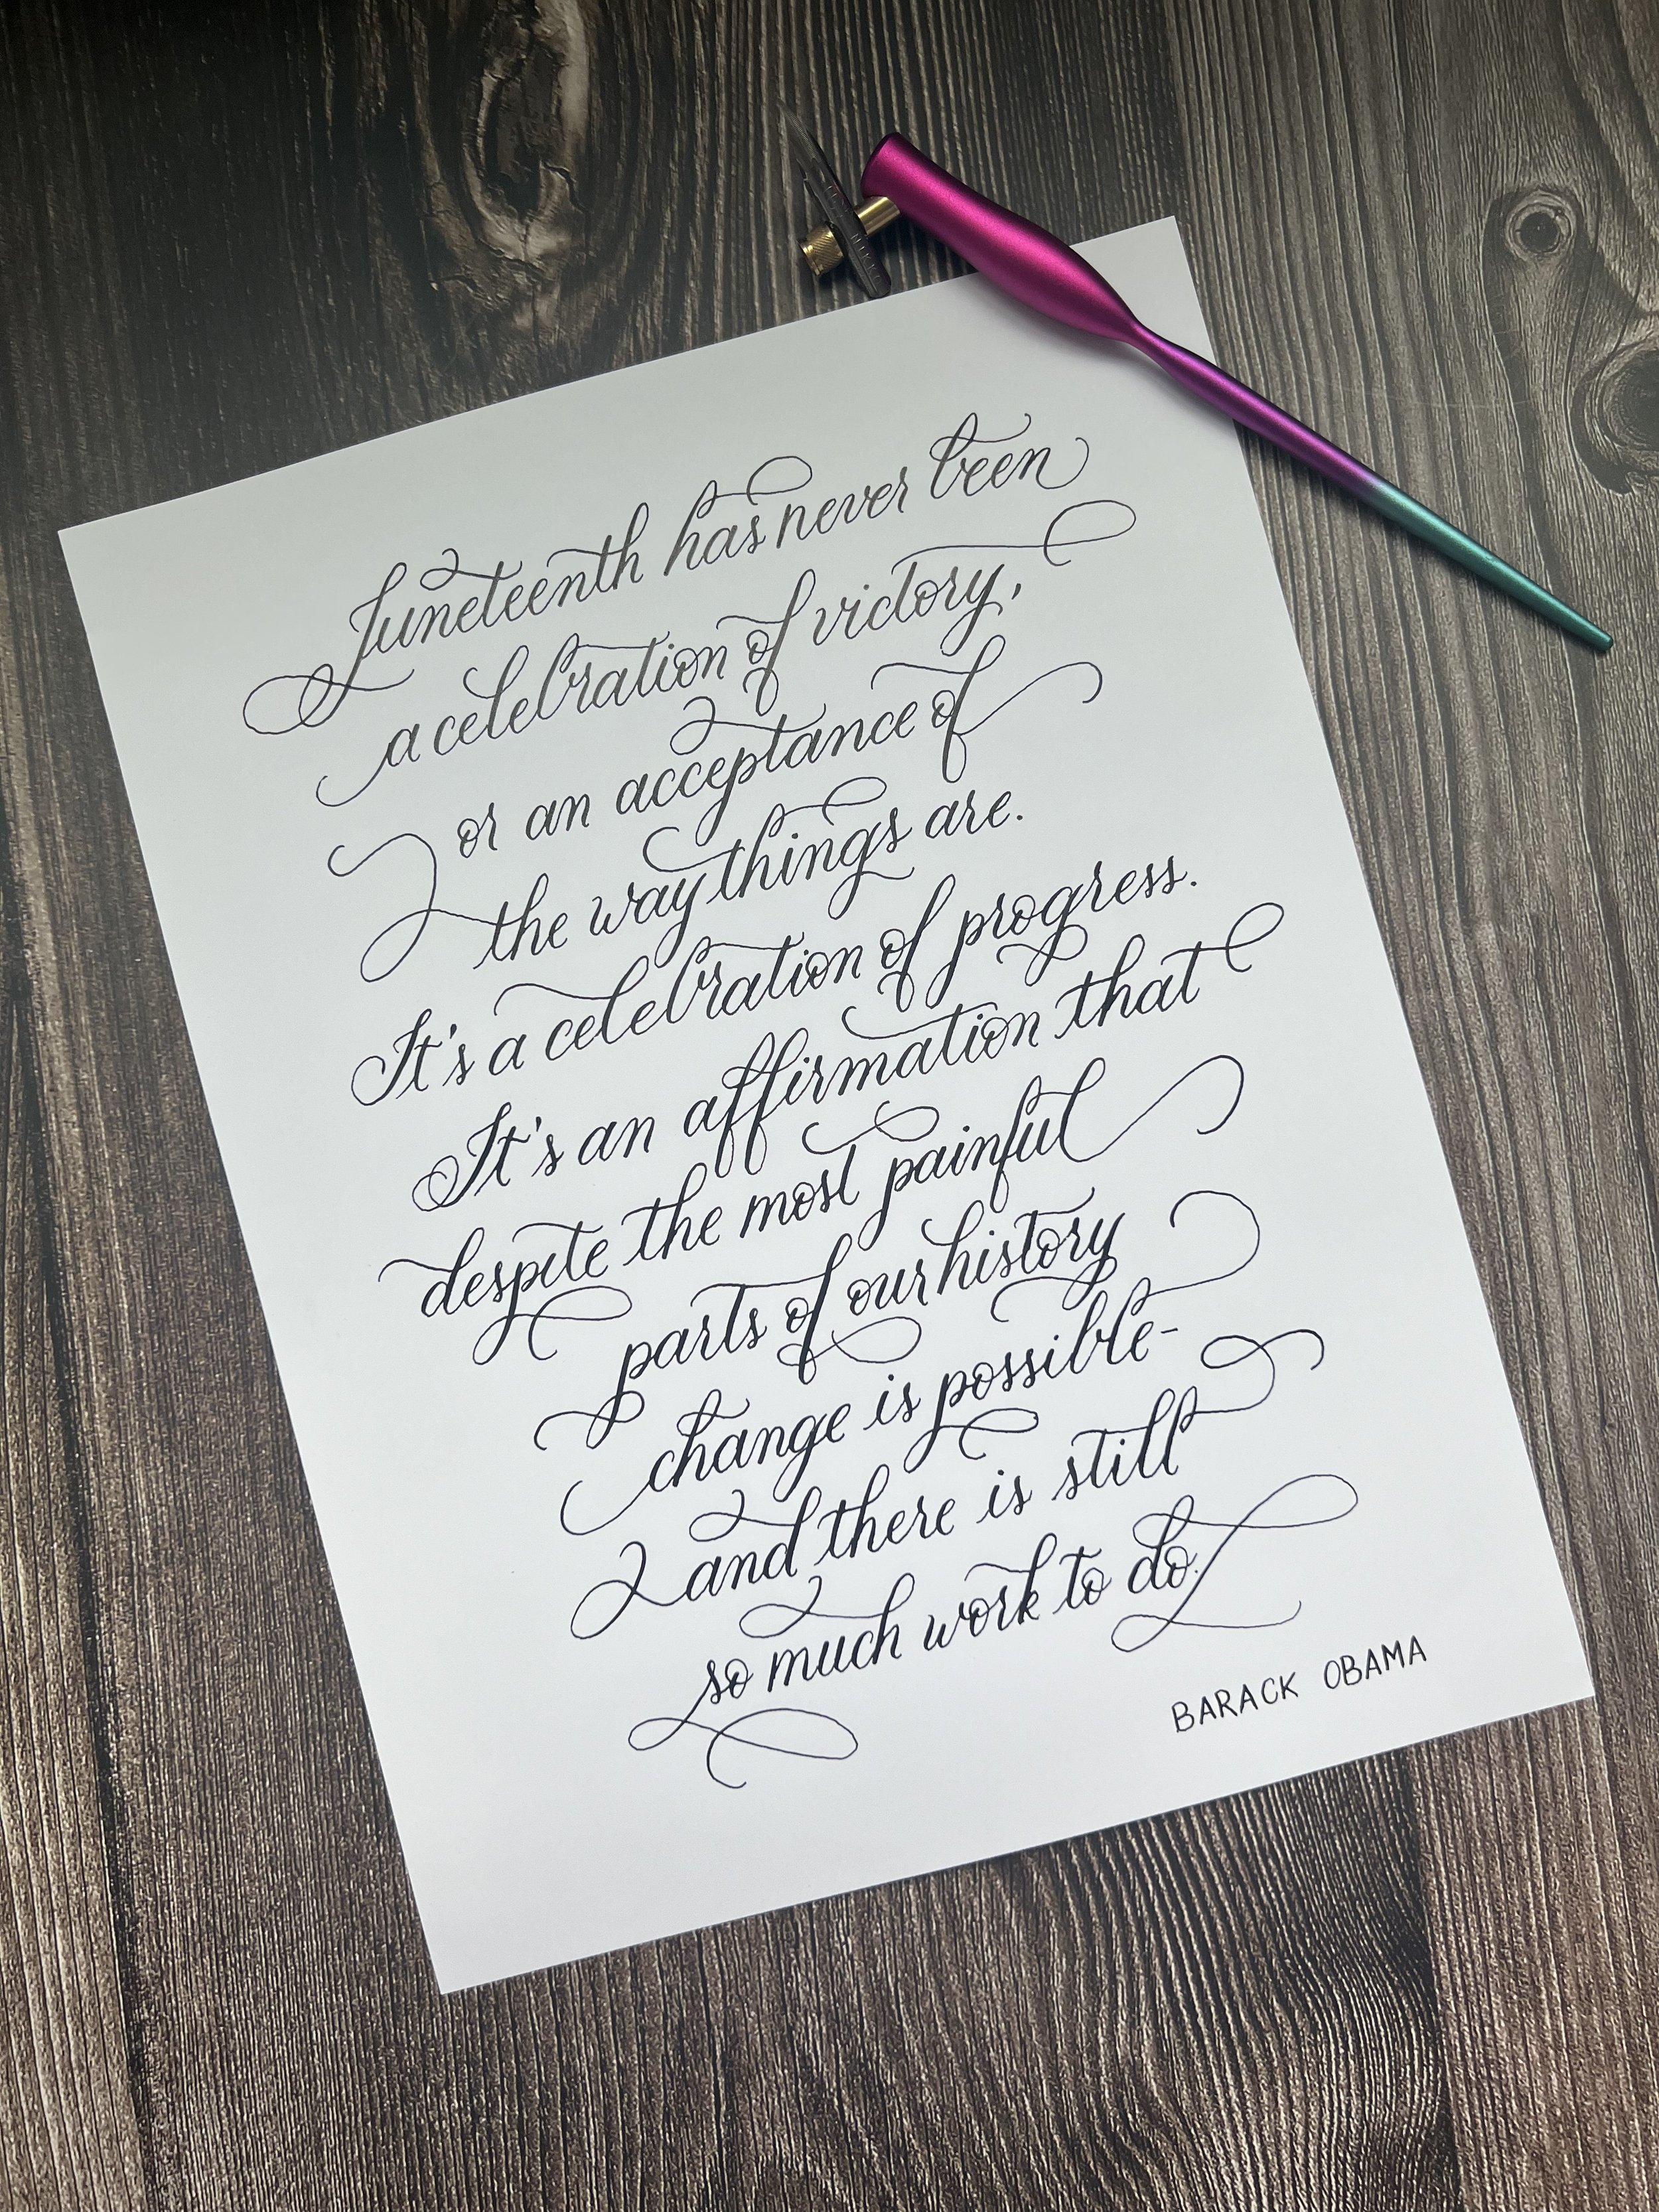 Juneteenth has never been
a celebration of victory,
or an acceptance of
the way things are.
It's a celebration of progress.
It's an affirmation that
despite the most painful
parts of our history
change is possible-
and there is still
so much work to do.
BARACK OBAMA